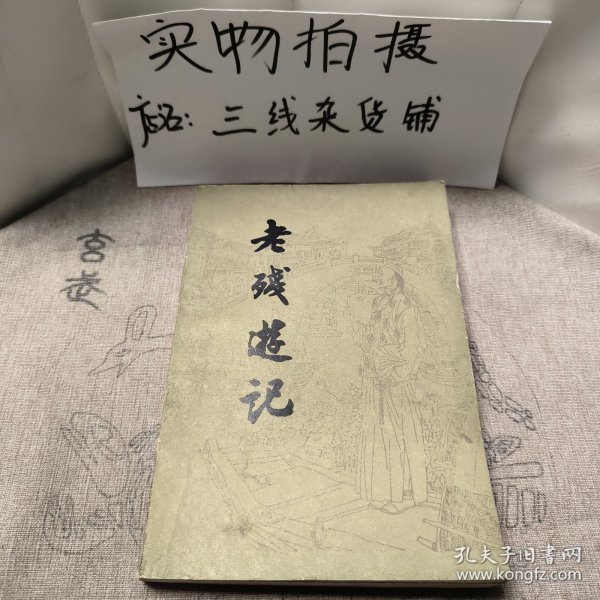 实物拍摄
店名: 三线杂货铺
老残遊记
玄武
孔夫子旧书网
www.kongfz.com